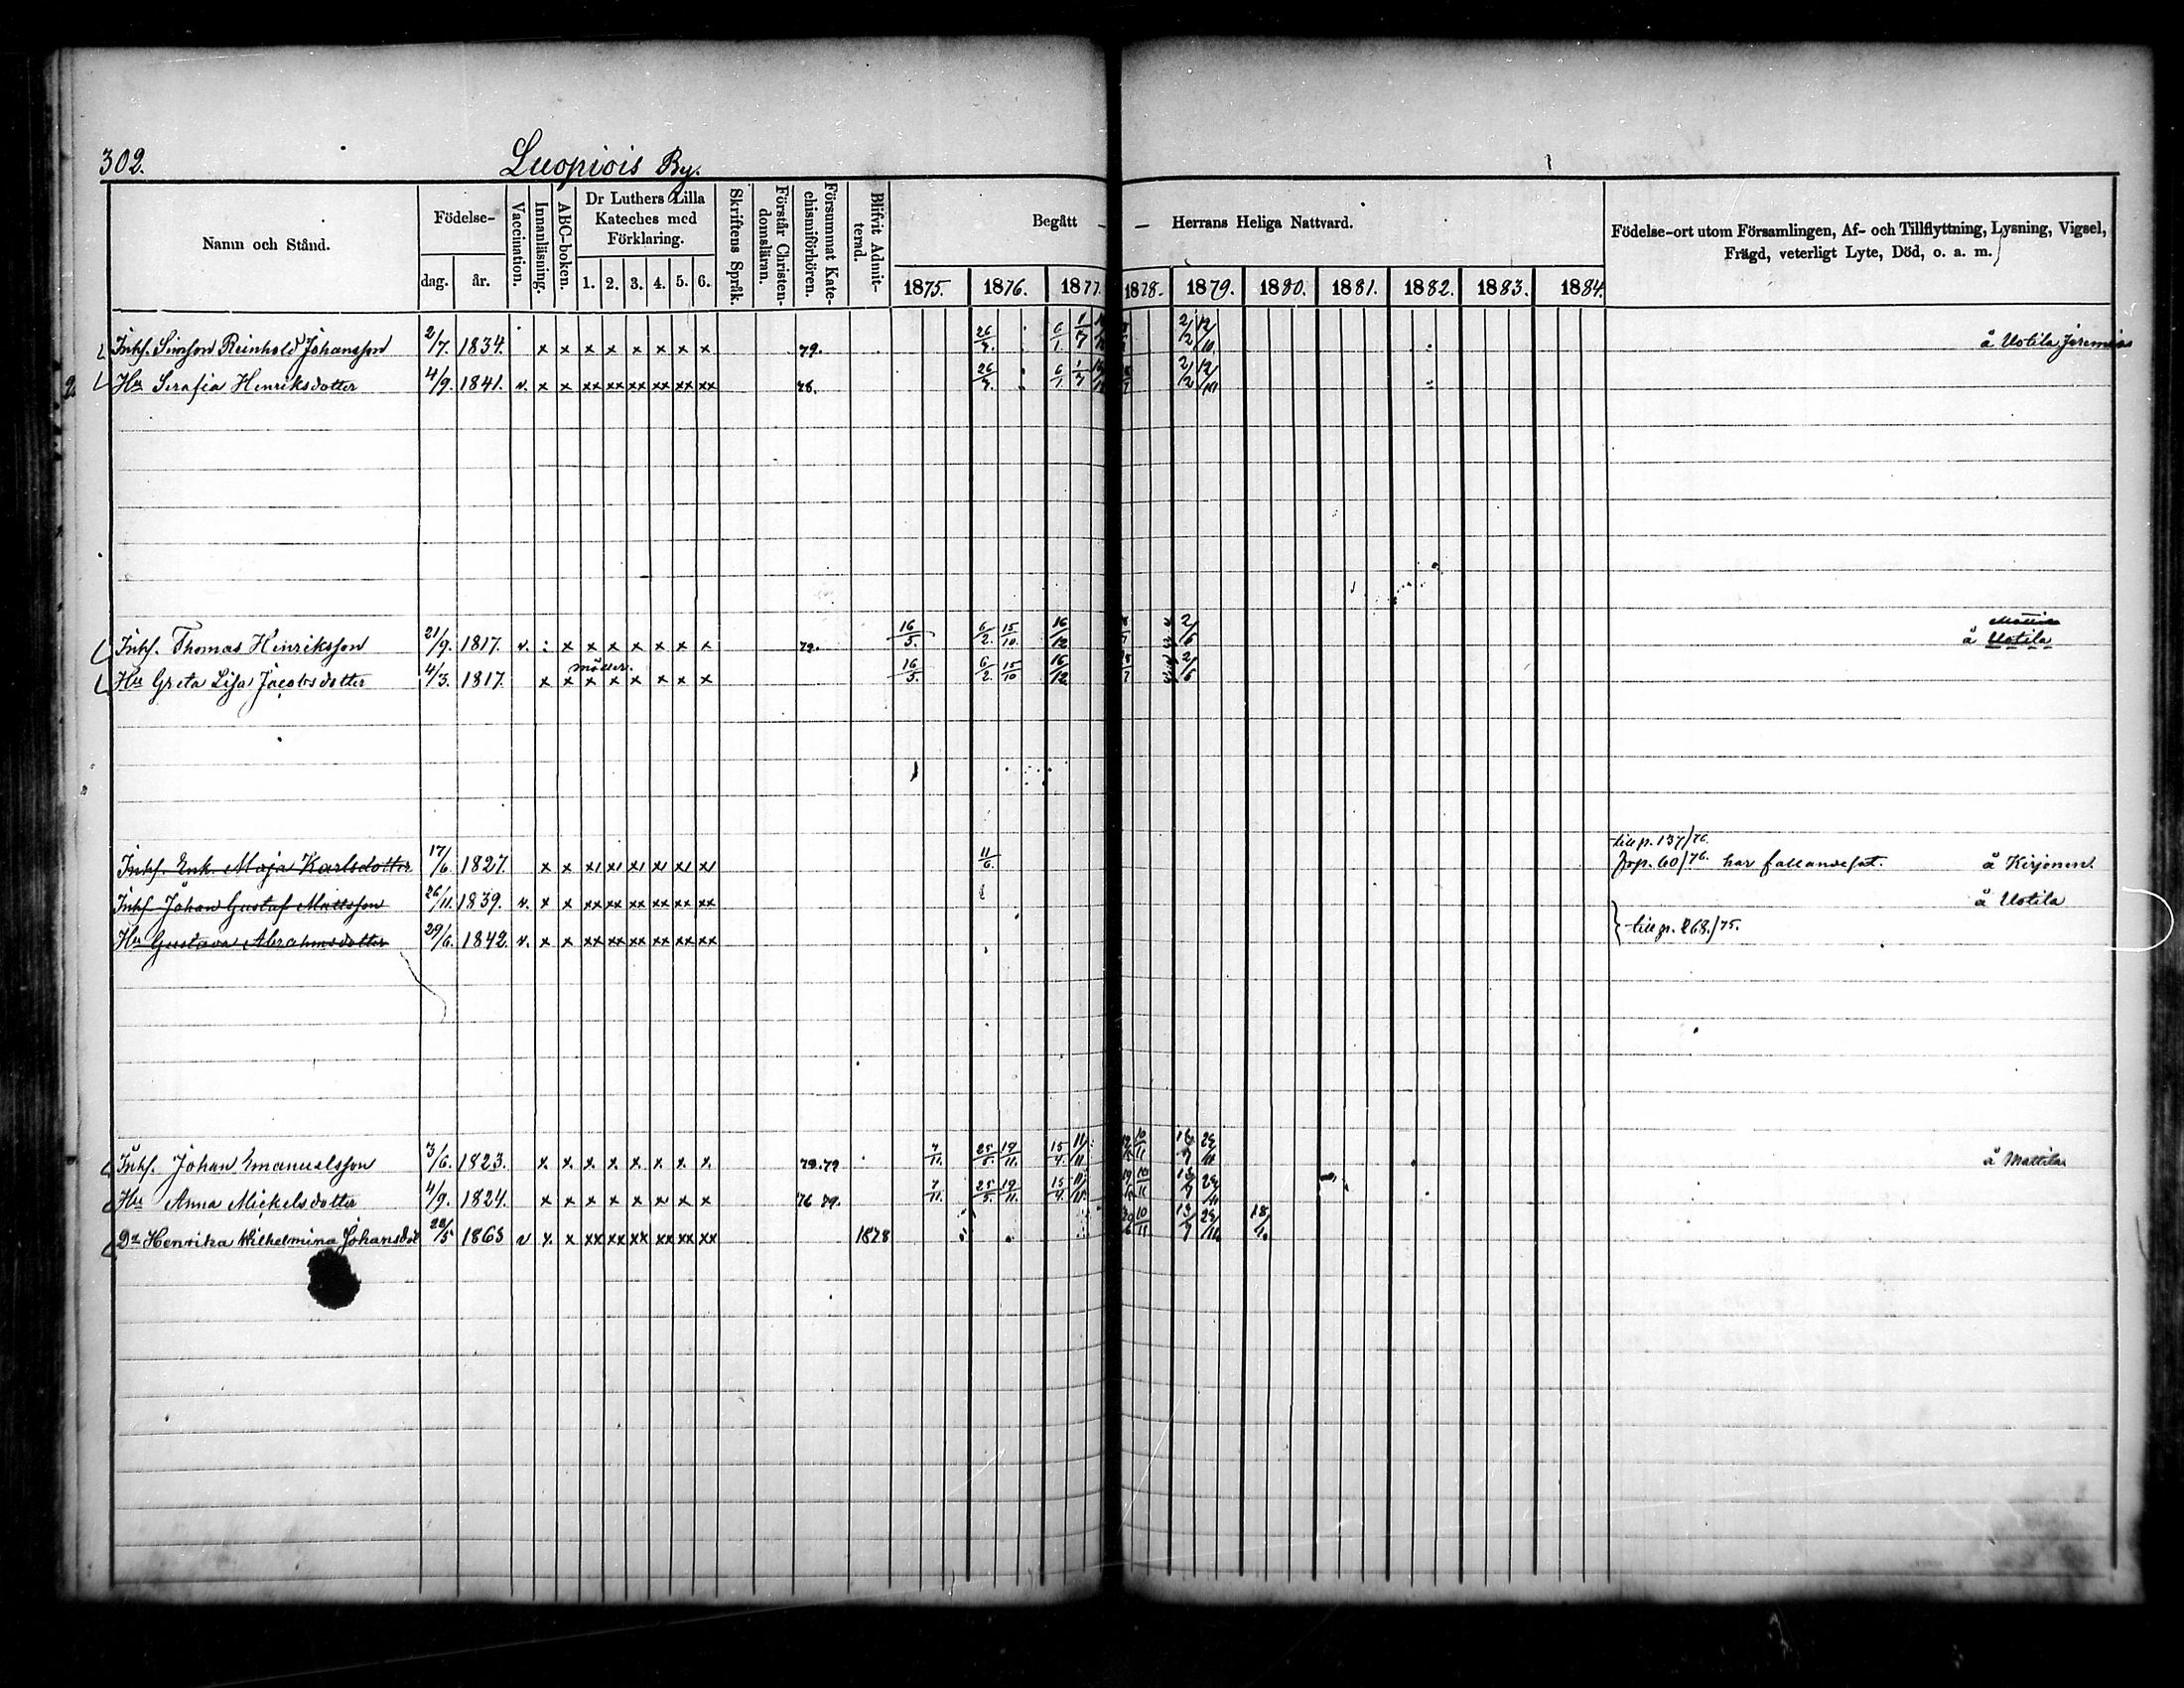 302.
Luopiois By.
Namn och Stånd.
Födelse-
dag.
år.
Vaccination.
Innanläsning.
ABC-boken.
Dr Luthers Lilla
Kateches med
Förklaring.
1. 2. 3. 4. 5. 6.
Skriftens Språk.
Förstår Christen-
domsläran.
Försummat Kate-
chismiförhören.
Blifvit Admit-
terad.
Begått — — Herrans Heliga Nattvard.
1875. 1876. 1877. 1878. 1879. 1880. 1881. 1882. 1883. 1884.
Födelse-ort utom Församlingen, Af- och Tillflyttning, Lysning, Vigsel,
Frägd, veterligt Lyte, Död, o. a. m.
Inhs. Simson Reinhold Johansson 2/7. 1834. x x x x x x x x 79. 26/7. 6/1. 1/7 2/2 12/10. å Uotila Jeremias
Hu Serafia Henriksdotter 4/9. 1841. v. x x xx xx xx xx xx xx 78. 26/7. 6/1 1/7 2/2 12/10
Inhs. Thomas Henriksson 21/9. 1817. v. : x x x x x x x 79. 16/5. 6/2. 15/10. 16/12 2/6 å Uotila
möller.
Hu Greta Lisa Jacobsdotter 4/3. 1817. x x x x x x x x 16/5. 6/2. 15/10 16/12 2/6
till p. 137/76.
Inhs. Enk. Maja Karlsdotter 17/6. 1827. x x 11/6. frp. 60/76. har fallandesot. å Kirjonen
Inhs Johan Gustaf Mattsson 26/11. 1839. v. x x xx xx xx xx xx xx å Uotila
Hu Gustava Abrahmsdotter 29/6. 1842. v. x x xx xx xx xx xx xx till p. 268./75.
Inhs. Johan Emanuelsson 3/6. 1823. x x x x x x x x 79. 7/11. 25/5. 19/11. 15/4. 11/11 10/11 å Mattila
Hu Anna Mickelsdotter 4/9. 1824. x x x x x x x x 76 79. 7/11. 25/5. 19/11. 15/4. 11/11. 10/11
Dr Henrika Wilhelmina Johansdot 1863 v x x xx xx xx xx xx xx 1878 10/11